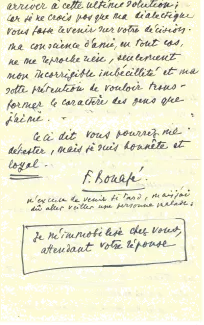 arriver à cette ultime solution ;
car je ne crois pas que ma dialectique
vous fasse revenir sur votre décision.
ma conscience d'ami, en tout cas,
ne me reprochera, seulement
mon incorrigible imbécillité et ma
sotte prétention de vouloir trans-
former le caractère des gens que
j'aime.
Ceci dit vous pourrez me
détester, mais je suis honnête et
loyal.
F. Bonafé.
m'excuse de venir si tard, mais j'ai
dû aller veiller une personne malade.
Je m'immobilise chez vous,
attendant votre réponse